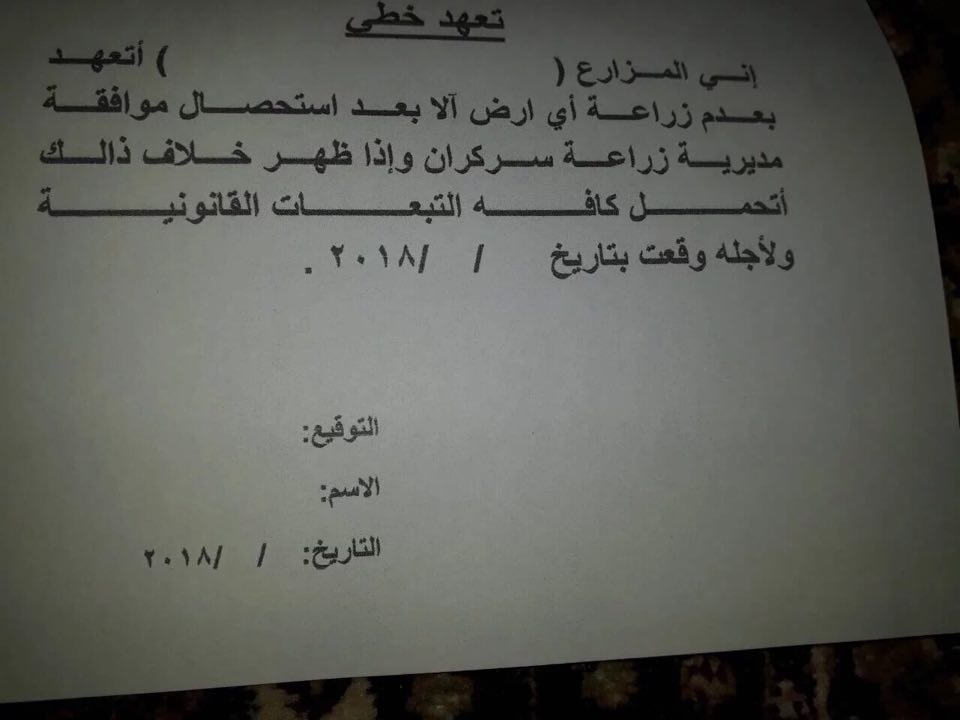 تعهد خطي
إني المزارع (                    ) أتعهد
بعدم زراعة أي ارض آلا بعد استحصال موافقة
مديرية زراعة سركران وإذا ظهر خلاف ذالك
أتحمل كافه التبعات القانونية
ولأجله وقعت بتاريخ    /    /٢٠١٨ .
التوقيع:
الاسم:
التاريخ:    /    /٢٠١٨